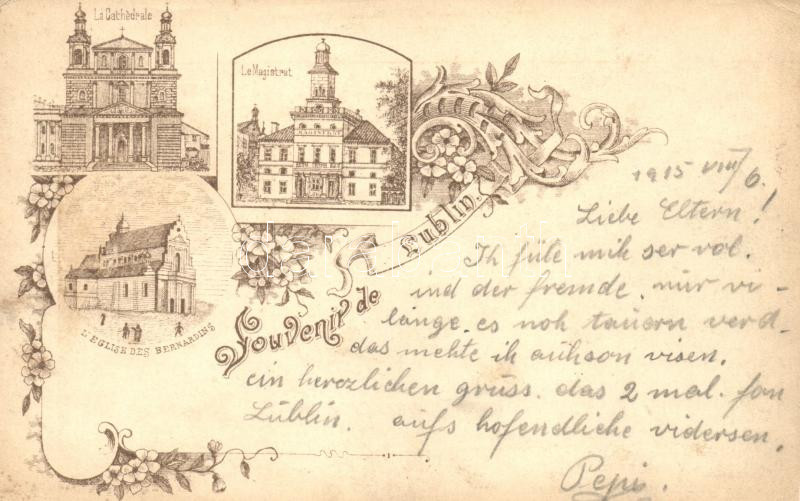 La Cathédrale
Le Magistrat
MAGISTRAT
L'EGLISE DES BERNARDINS
Souvenir de Lublin.
1915 VIII/6.
Liebe Eltern!
Ih füle mih ser vol.
ind der fremde. nur vi-
lange. es noh tauern verd.
das mehte ih auhson visen.
ein herzlichen grüss. das 2 mal. fon
Lublin. aufs hofendliche vidersen.
Pepi.